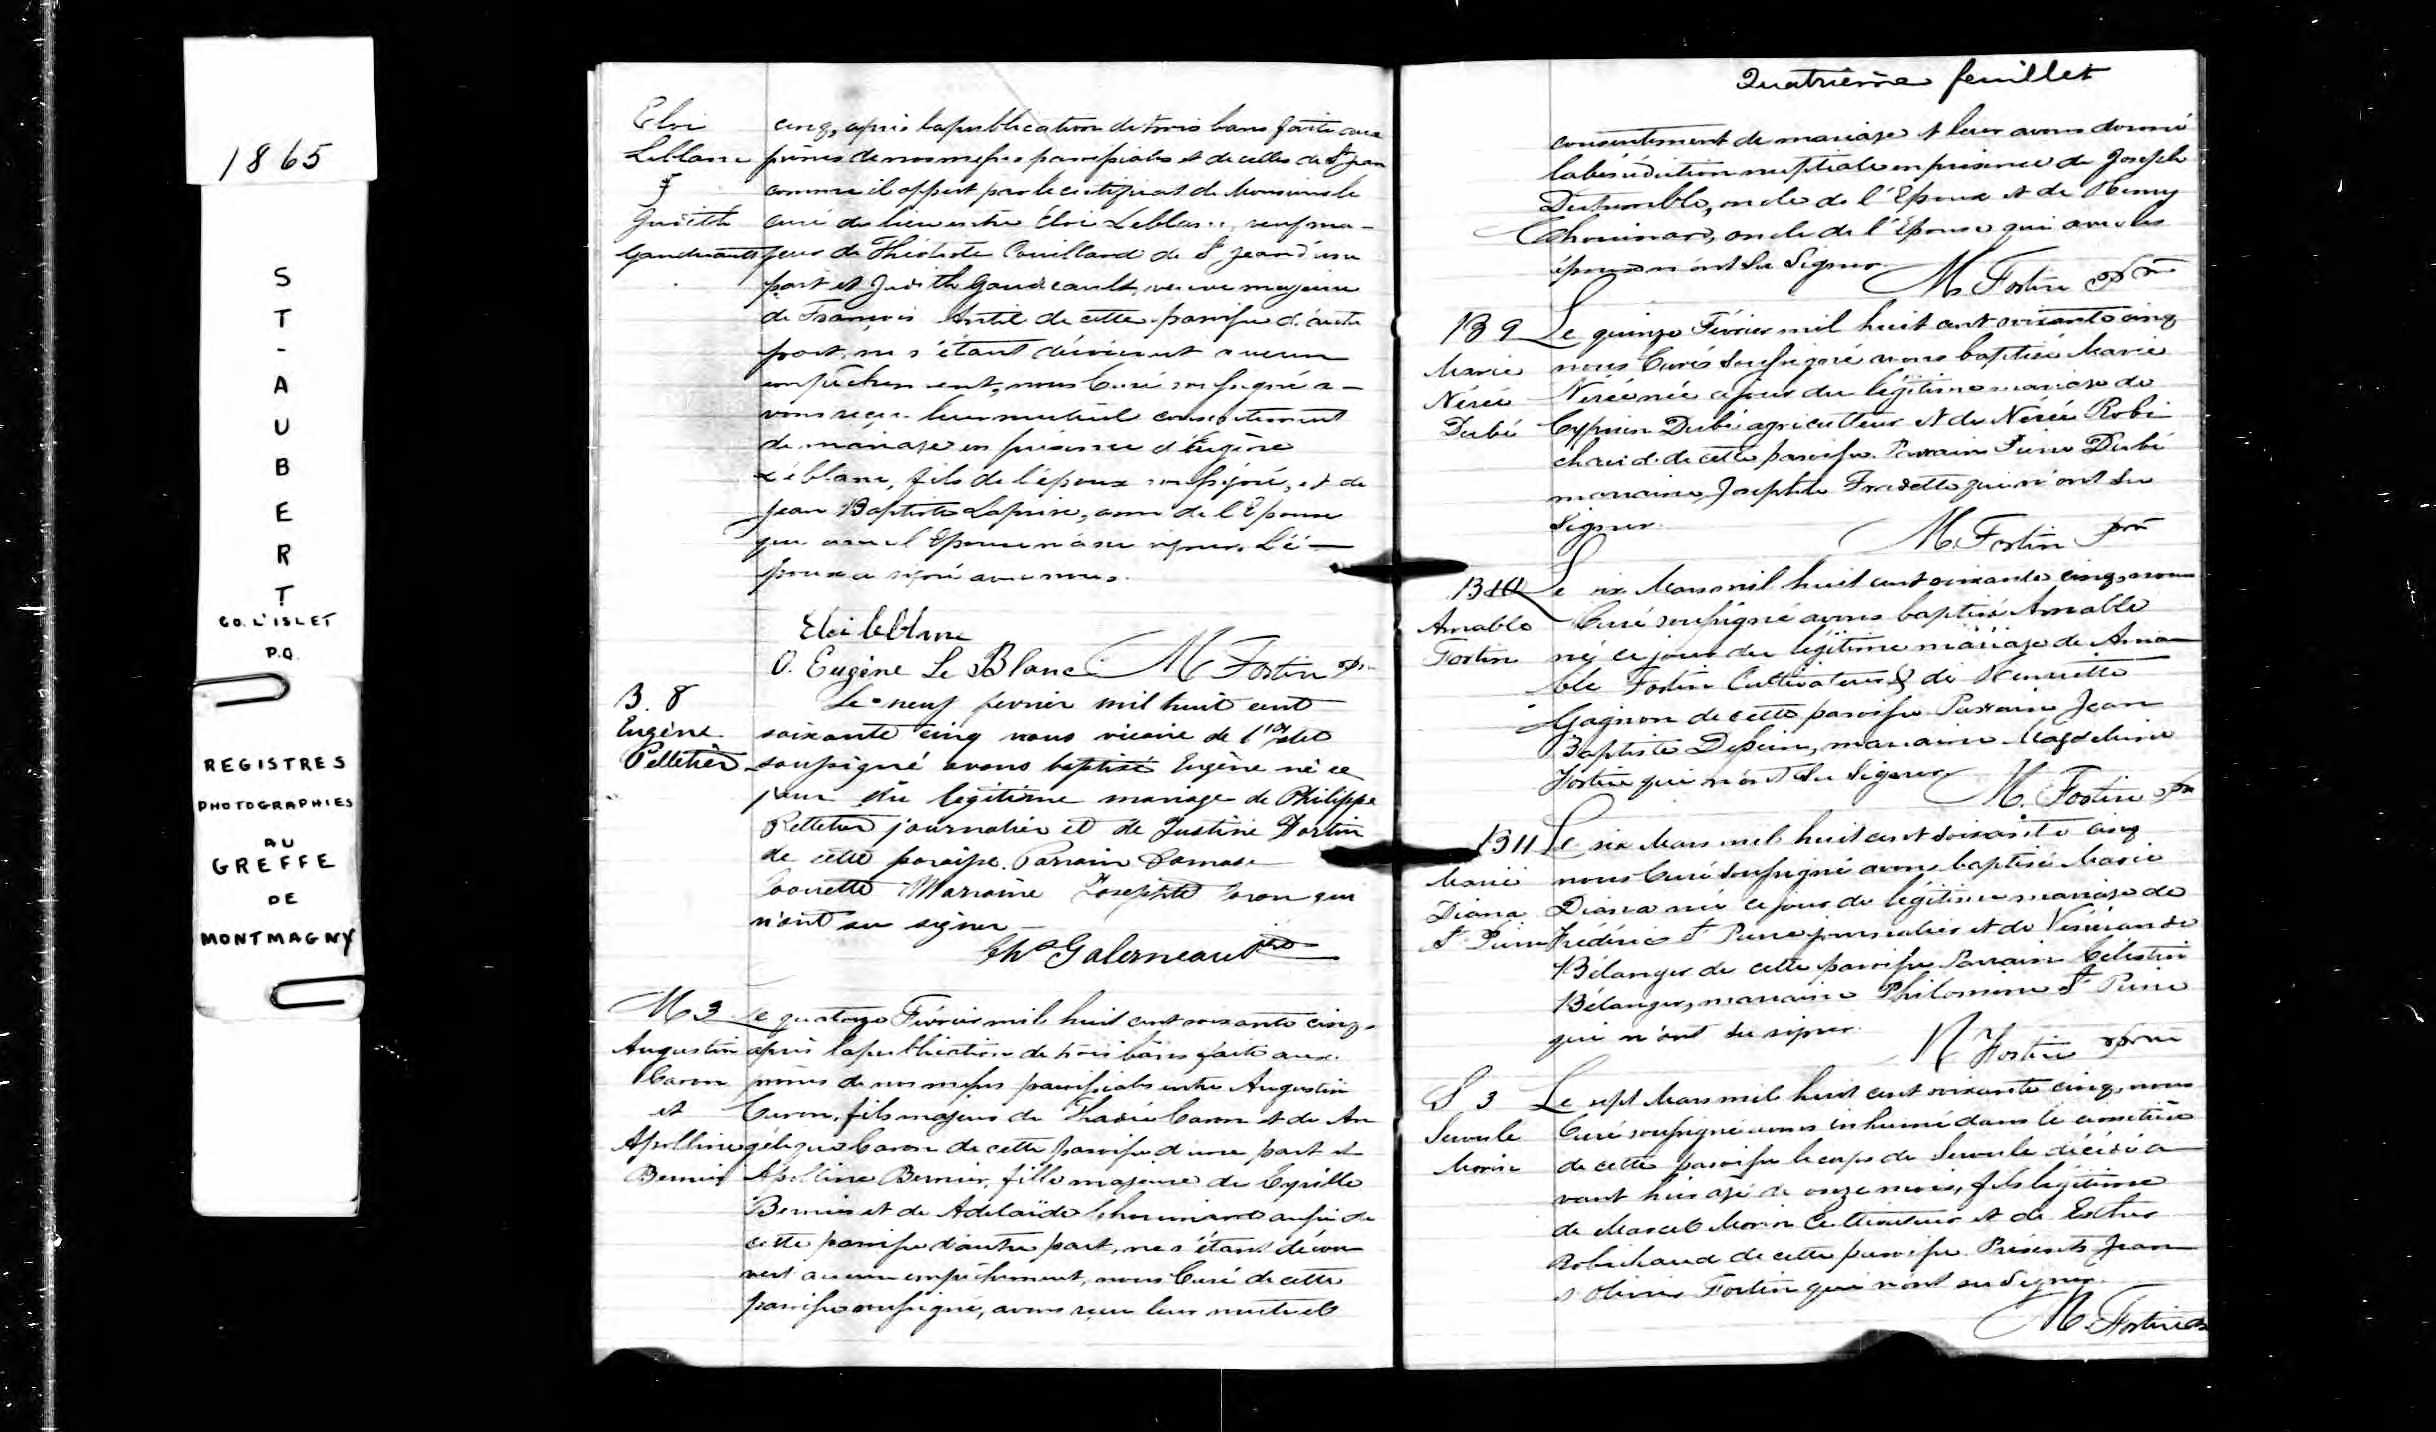 1865
S
T
-
A
U
B
E
R
T
CO. L'ISLET
P.Q.
REGISTRES
PHOTOGRAPHIES
AU
GREFFE
DE
MONTMAGNY
Eloi
Leblanc
&
Judith
Gaudreault
cinq, après la publication de trois bans faite aux
prônes de nos messes paroissiales et de celles de St Jean
comme il appert par le certificat de Monsieur le
curé du lieu entre Éloi Leblanc, veuf ma-
jeur de Théotiste Couillard de St Jean d'une
part et Judith Gaudreault, veuve majeure
de François de cette paroisse d'autre
part, ne s'étant découvert aucun
empêchement, nous Curé soussigné a-
vons reçu leur mutuel consentement
de mariage en présence d'Eugène
Leblanc, fils de l'époux soussigné, et de
Jean Baptiste Laprise, ami de l'Epouse
qui avec l'Epouse n'a su signer. L'é-
poux a signé avec nous.
Eloi leblanc
O. Eugène Le Blanc M Fortin Ptre
B. 8
Eugène
Pelletier
Le neuf fevrier mil huit cent
soixante cinq nous vicaire de l'Islet
soussigné avons baptisé Eugène né ce
jour du légitime mariage de Philippe
Pelletier journalier et de Justine Fortin
de cette paroisse. Parrain Damase
Marraine Josephte Caron qui
n'ont su signer
Chs Galerneau Ptre
M 3
Augustin
Caron
et
Apolline
Bernier
Le quatorze Février mil huit cent soixante cinq,
après la publication de trois bans faite aux
prônes de nos messes paroissiales entre Augustin
Caron, fils majeur de Caron et de An
gélique Caron de cette paroisse d'une part et
Apolline Bernier, fille majeure de Cyrille
Bernier et de Adelaïde Chouinard aussi de
cette paroisse d'autre part, ne s'étant décou
vert aucun empêchement, nous Curé de cette
paroisse soussigné, avons reçu leur mutuel
Quatrième feuillet
consentement de mariage et leur avons donné
la bénédiction nuptiale en présence de Joseph
Dutremble, oncle de l'Epoux et de Rémy
Chouinard, oncle de l'Epouse qui avec les
époux n'ont su signer.
M. Fortin Ptre
B 9
Marie
Nérée
Dubé
Le quinze Février mil huit cent soixante cinq
nous Curé soussigné avons baptisé Marie
Nérée née ce jour du légitime mariage de
Cyprien Dubé agriculteur et de Nérée Robi
chaud de cette paroisse. Parrain Dubé
marraine Josephte Fradette qui n'ont su
signer.
M. Fortin Ptre
B 10
Amable
Fortin
Le six Mars mil huit cent soixante cinq, nous
Curé soussigné avons baptisé Amable
né ce jour du légitime mariage de Ama
ble Fortin Cultivateur & de Henriette
Gagnon de cette paroisse Parrain Jean
Baptiste marraine Magdeleine
Fortin qui n'ont su signer
M. Fortin Ptre
B 11
Marie
Diana
St Pierre
Le six Mars mil huit cent soixante cinq
nous Curé soussigné avons baptisé Marie
Diana née ce jour du légitime mariage de
Frédéric St Pierre journalier et de Vénérande
Bélanger de cette paroisse Parrain Célestin
Bélanger, marraine Philomène St Pierre
qui n'ont su signer.
M Fortin Ptre
S 3
Servule
Morin
Le sept Mars mil huit cent soixante cinq, nous
Curé soussigné avons inhumé dans le cimetière
de cette paroisse le corps de Servule décédé a
vant hier agé de onze mois, fils légitime
de Marcel Morin Cultivateur et de Esther
Robichaud de cette paroisse. Présents Jean
& Olivier Fortin qui n'ont su signer.
M. Fortin Ptre